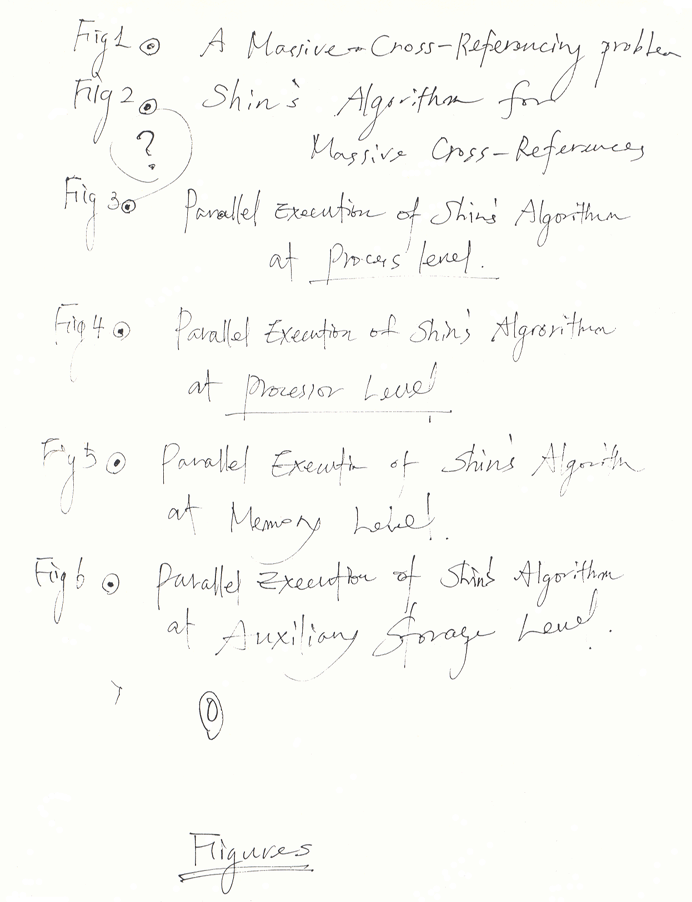 Fig 1 ⊙ A Massive-Cross-Referencing problem
Fig 2 ⊙ Shin's Algorithm for
Massive Cross-References
?
Fig 3 ⊙ Parallel Execution of Shin's Algorithm
at Process level.
Fig 4 ⊙ Parallel Execution of Shin's Algrorithm
at processor Level
Fig 5 ⊙ Parallel Execution of Shin's Algorithm
at Memory Level.
Fig 6 ⊙ Parallel Execution of Shin's Algorithm
at Auxiliary Storage Level.
0
Figures